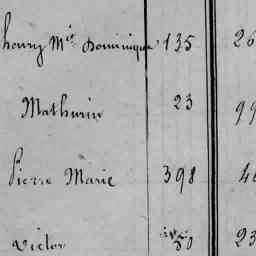 Mie Dominique 135 26
Mathurin 23 99
Pierre Marie 398
Victor 50 23